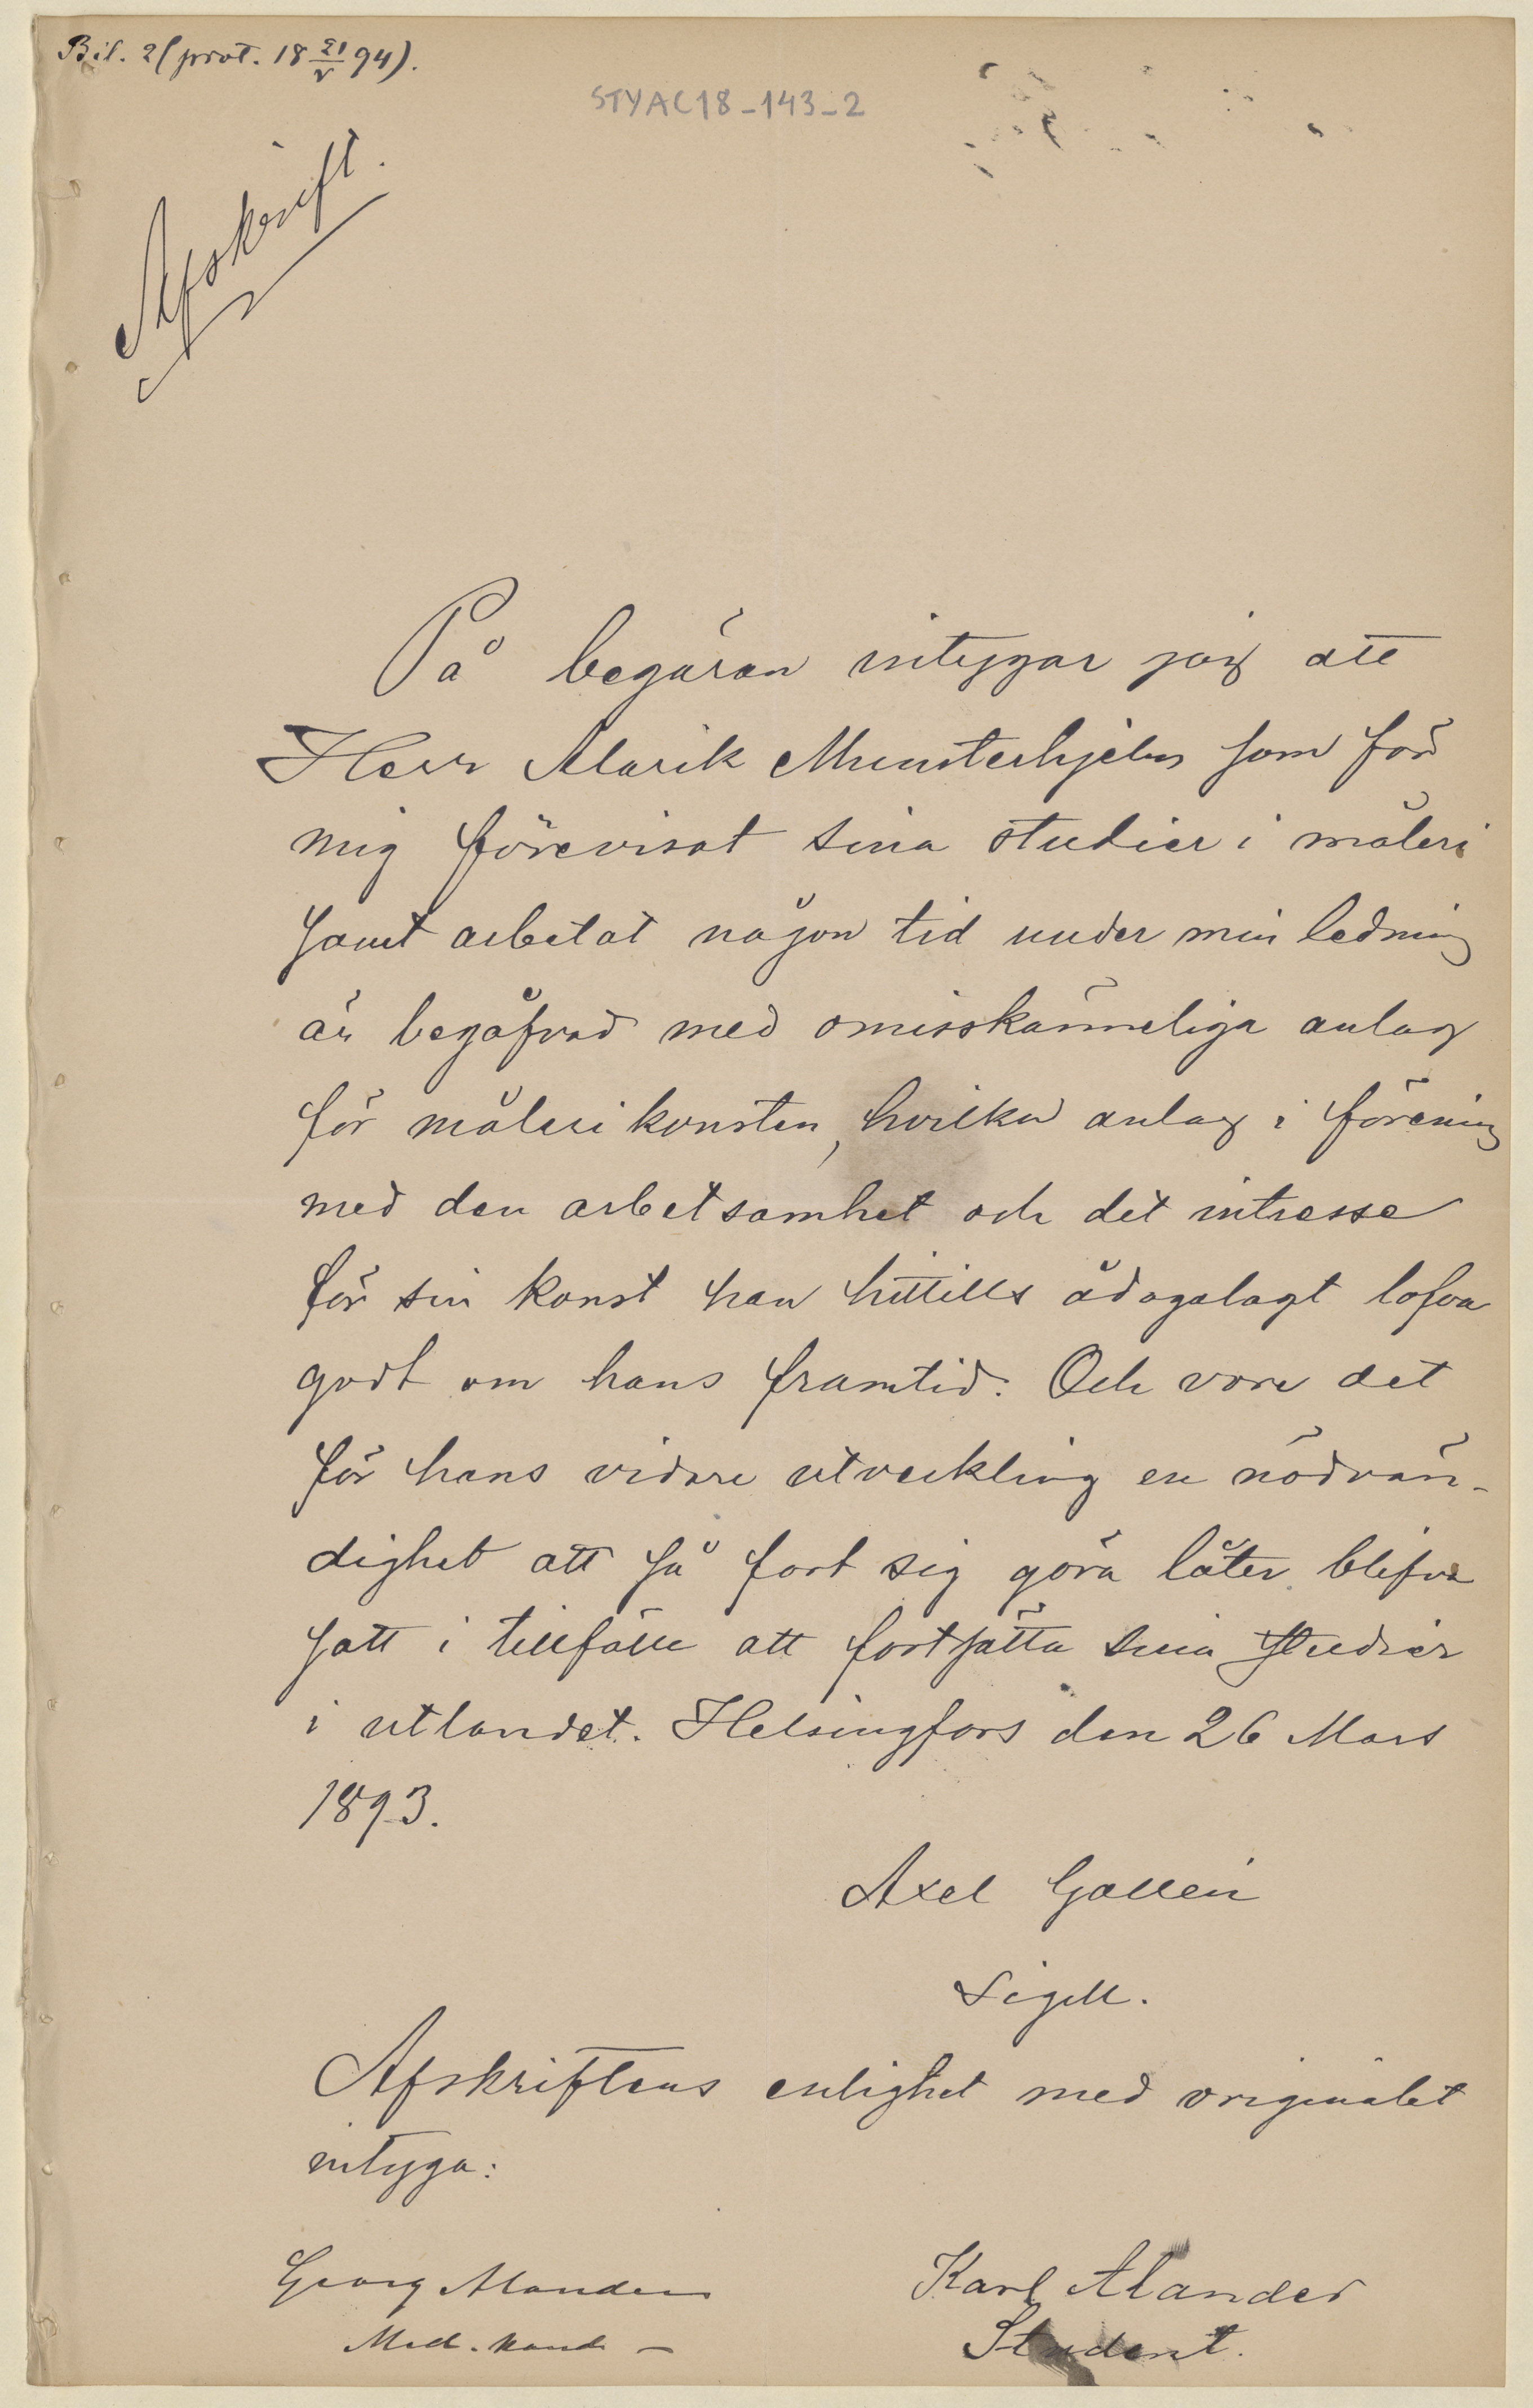 Bil. 2 (prot. 18 21/V 94).
STYAC18-143-2
Afskrift.
På begäran intygar jag att
Herr Alarik Munsterhjelm som för
mig förevisat sina studier i måleri
samt arbetat någon tid under min ledning
är begåfvad med omisskänneliga anlag
för målerikonsten, hvilka anlag i förening
med den arbetsamhet och det intresse
för sin konst han hittills ådagalagt lofva
godt om hans framtid. Och vore det
för hans vidare utveckling en nödvän-
dighet att så fort sig göra låter blifva
satt i tillfälle att fortsätta sina studier
i utlandet. Helsingfors den 26 Mars
1893.
Axel Gallén
Sigill.
Afskriftens enlighet med originalet
intyga:
Georg Alander Karl Alander
Med. kand. Student.